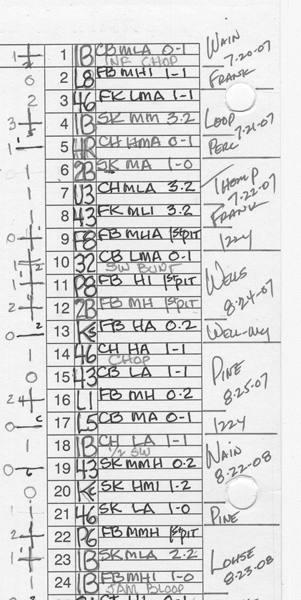 1 1B CB MLA 0-1 Wain 7-20-07
INF CHOP
2 L8 FB MHI 1-1 Frank
3 46 FK LMA 1-1
4 1B SK MM 3.2 Loop 7-21-07
5 HR CH HMA 0-1 Perc
6 2B SK MA 1-0
7 U3 CH MLA 3.2 Thomp 7-22-07
8 43 FK MLI 3.2 Frank
9 F8 FB MHA 1stPIT 1zzy
10 32 CB LMA 0-1
SW BUNT
11 P8 FB HI 1stPIT Wells 8-24-07
12 2B FB MH 1stPIT
13 Ks FB HA 0.2 Well-My
14 46 CH HA 1-1
CHOP
15 43 CB LA 1-1 Pine 8-25-07
16 L1 FB MH 0.2
17 L5 CB MA 0-1 1zzy
18 1B CH LA 1-1 Wain 8-22-08
1/2 SW
19 43 SK MMH 0.2
20 Ks SK HMI 1.2
21 46 SK LA 1.0 Pine
22 P6 FB MMH 1stPIT
23 1B SK MLA 2.2 Lohse 8-23-08
24 1B FB MHI 1-0
JAM BLOOP